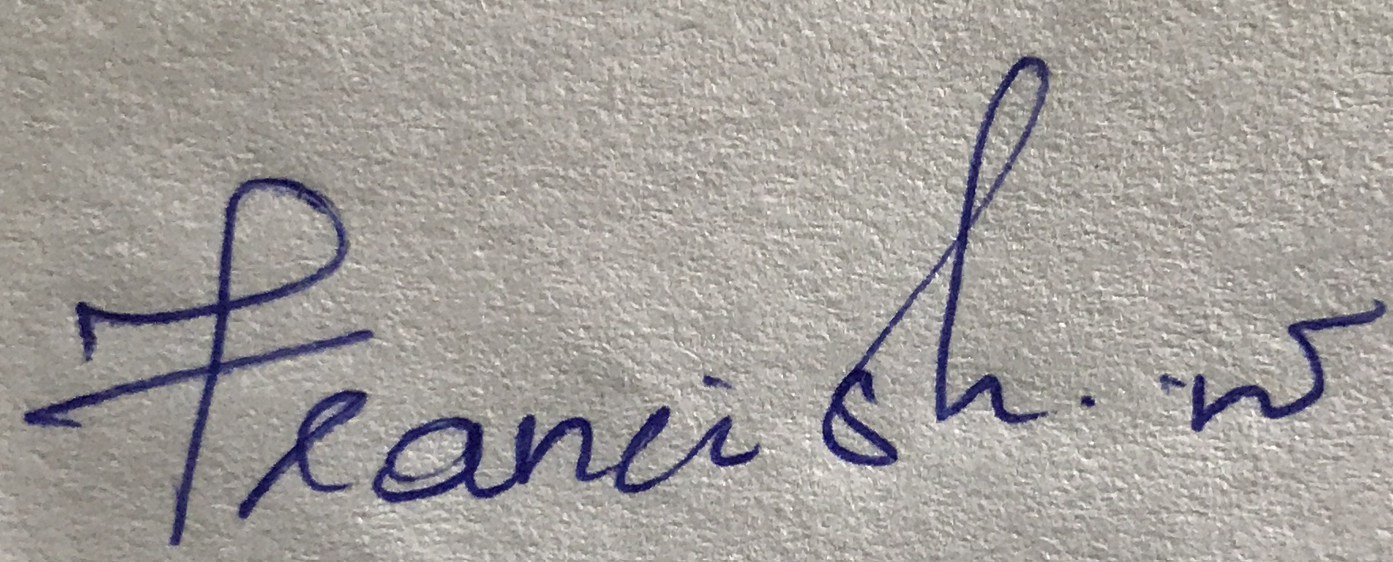 Francish. w